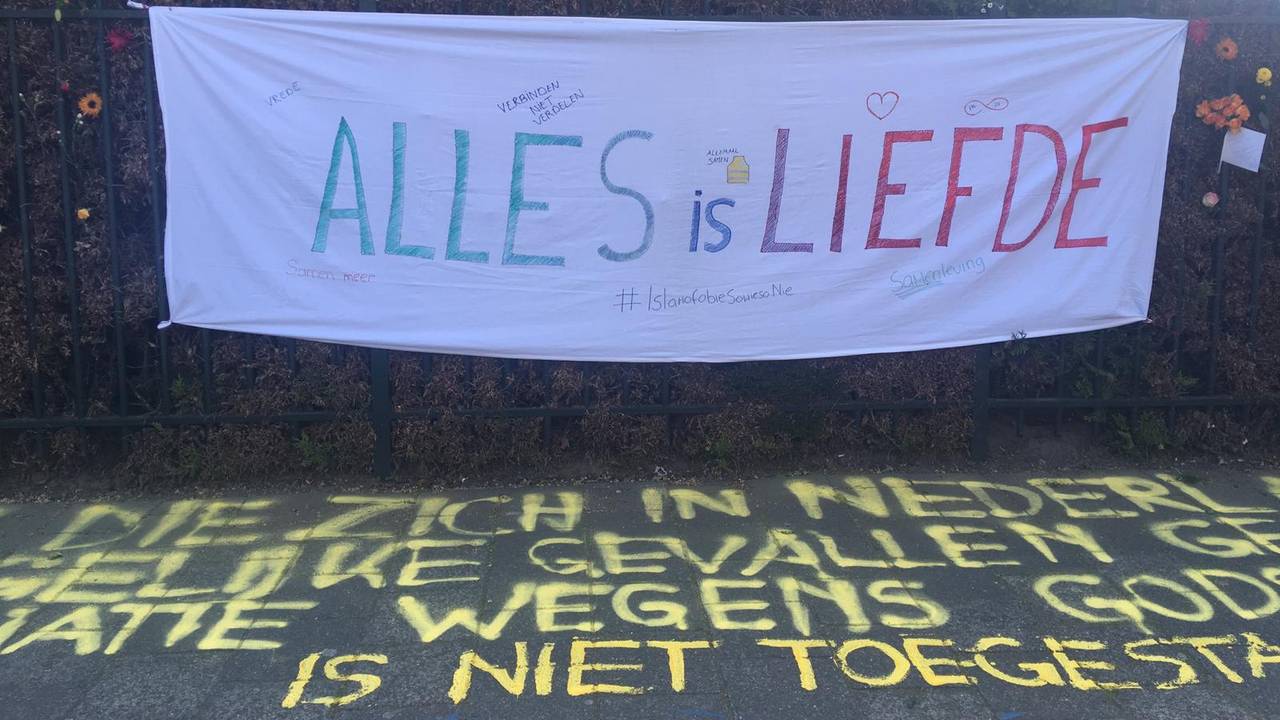 VREDE
VERBINDEN
NIET
VERDELEN
ALLEMAAL
SAMEN
ALLES is LIEFDE
Samen meer
#IslamofobieSowiesoNie
Samenleving
DIE ZICH IN NEDERL
GELIJKE GEVALLEN GE
NATIE WEGENS GODS
IS NIET TOEGESTA